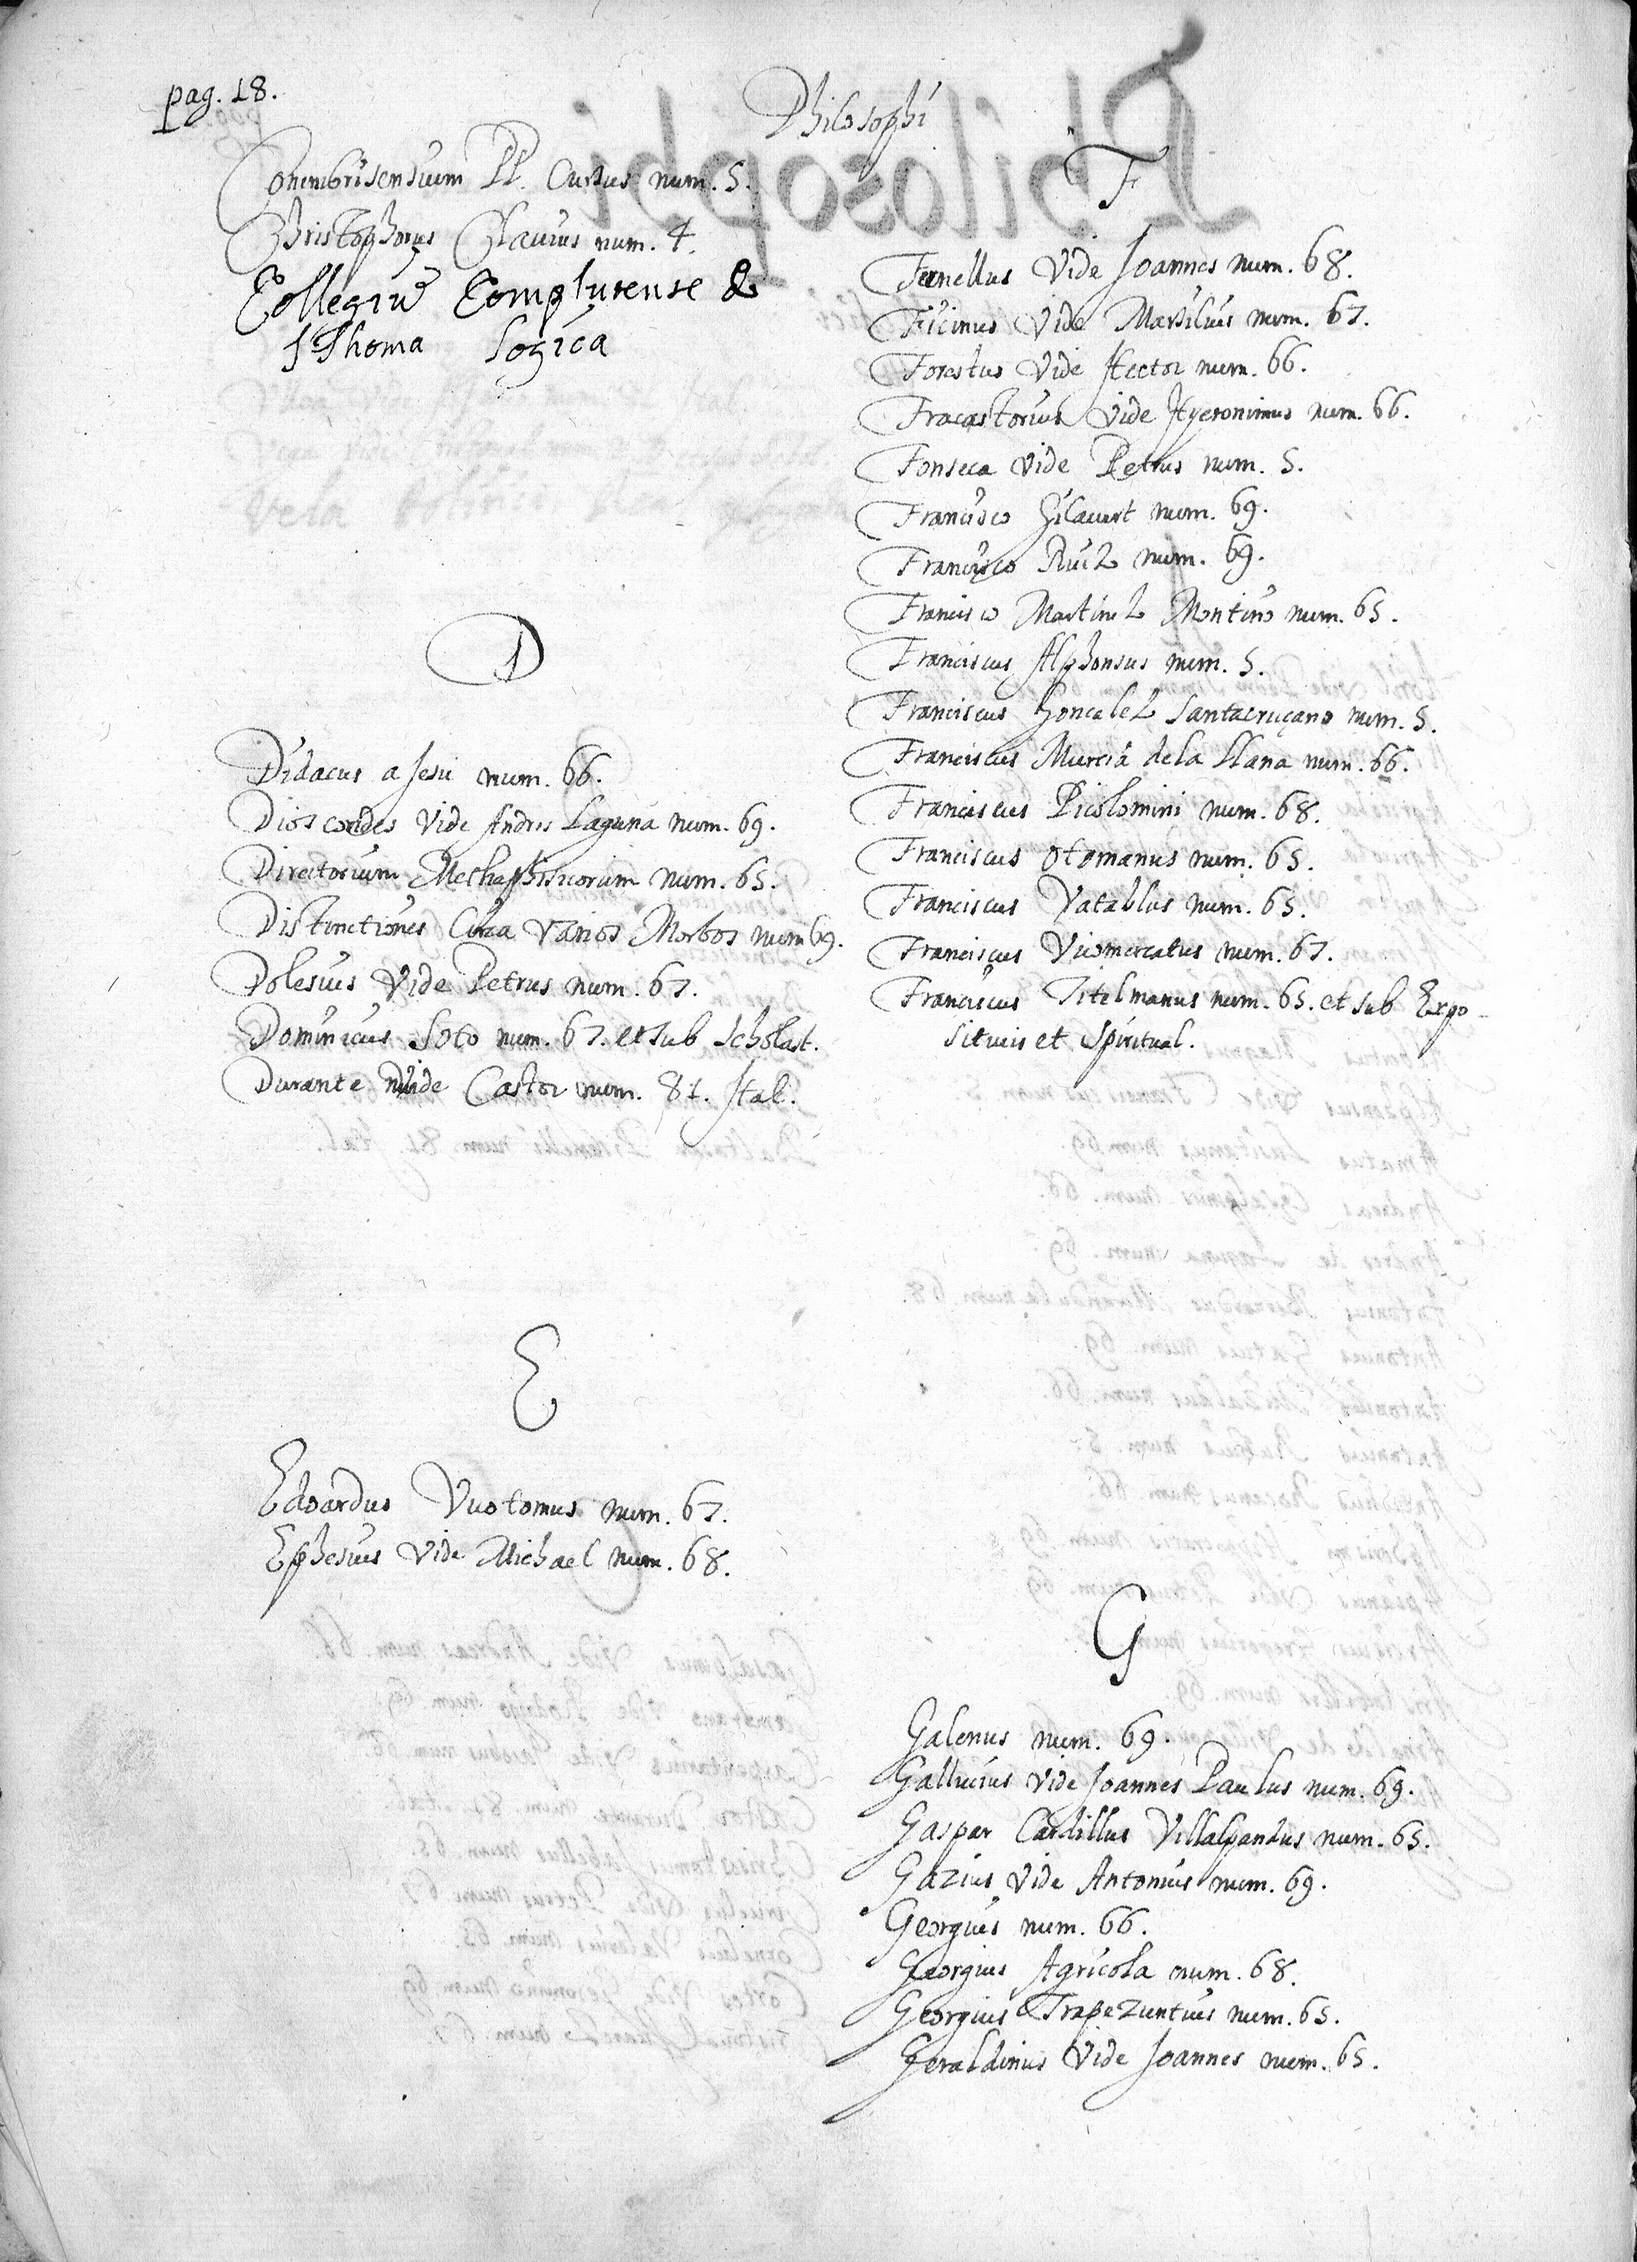 pag. 18.
Philosophi
Conimbrisensium PP. Cursus num. 5.
Christophorus Clavius num. 4.
Collegiũ Complutense &
S Thoma Logica
D
Didacus a Jesu num. 66.
Dioscorides Vide Andres Laguna num. 69.
Directorium Methaphisicorum num. 65.
Distinctiones Circa Varios Morbos num 69.
Dolesius Vide Petrus num. 67.
Dominicus Soto num. 67. et sub Scholast.
Durante Vide Castor num. 81. Ital.
E
Edoardus Vuotomus num. 67.
Ephesius Vide Michael num. 68.
F
Fernellus Vide Joannes num. 68.
Ficinus Vide Marsilius num. 67.
Forestus Vide Hector num. 66.
Fracastorius Vide Hyeronimus num. 66.
Fonseca Vide Petrus num. 5.
Francisco Gilavert num. 69.
Francisco Ruiz num. 69.
Francisco Martinez Montino num. 65.
Franciscus Alphonsus num. 5.
Franciscus Goncalez Santacruçano num. 5.
Franciscus Murcia de la Llana num. 66.
Franciscus Picolomini num. 68.
Franciscus Otomanus num. 65.
Franciscus Vatablus num. 65.
Franciscus Vicomercatus num. 67.
Franciscus Titelmanus num. 65. et sub Expo
sitivis et Spiritual.
G
Galenus num. 69.
Gallucius Vide Joannes Paulus num. 69.
Gaspar Cardillus Villalpandus num. 65.
Gazius Vide Antonius num. 69.
Georgius num. 66.
Georgius Agricola num. 68.
Georgius Trapezuntius num. 65.
Geraldinus Vide Joannes num. 65.